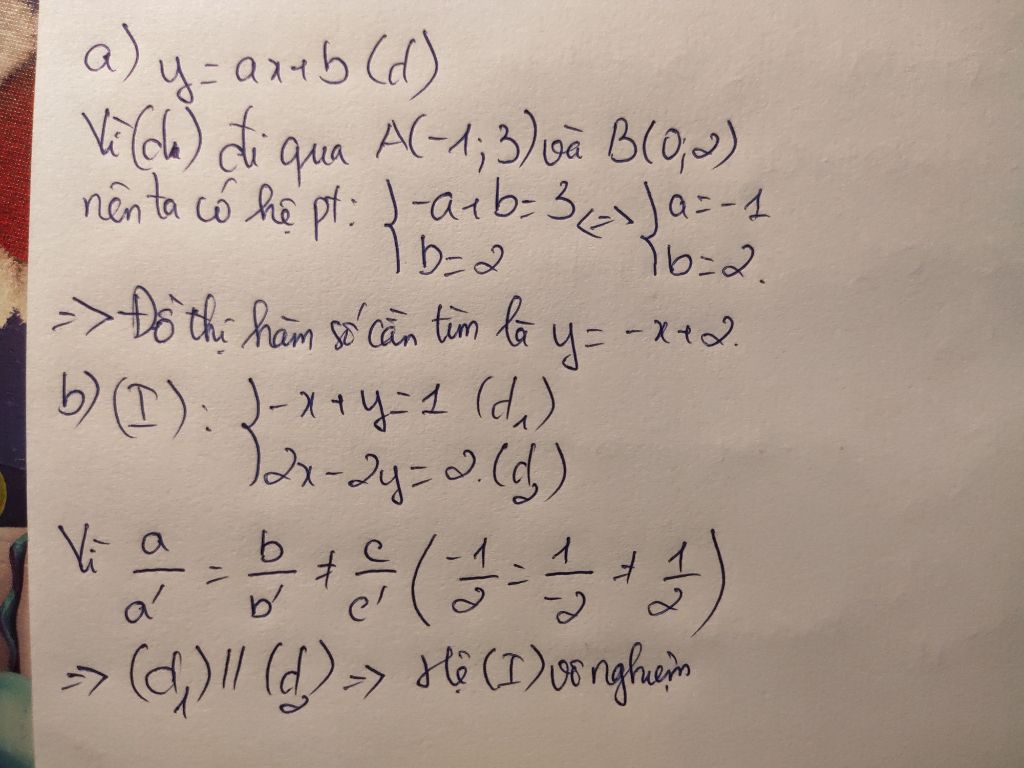 a) y = ax+b (d)
Vì (d) đi qua A(-1; 3) và B(0; 2)
nên ta có hệ pt: { -a+b=3 <=> { a=-1
b=2 b=2.
=> Đồ thị hàm số cần tìm là y = -x+2.
b) (I): { -x+y=1 (d₁)
2x-2y=2. (d₂)
Vì a/a' = b/b' ≠ c/c' ( -1/2 = 1/-2 ≠ 1/2 )
=> (d₁) // (d₂) => Hệ (I) vô nghiệm